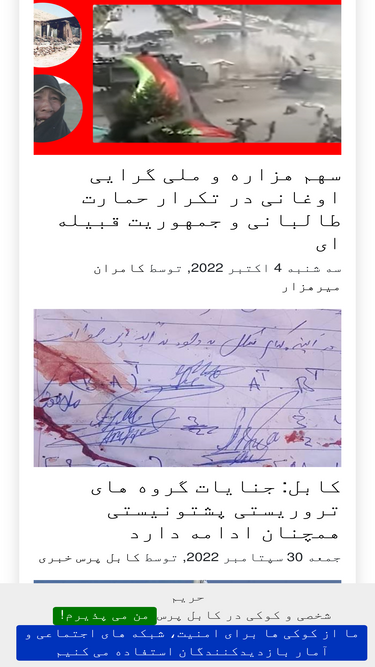 سهم هزاره و ملی گرایی
اوغانی در تکرار حمارت
طالبانی و جمهوریت قبیله
ای
سه شنبه 4 اکتبر 2022, توسط کامران
میرهزار
کابل: جنایات گروه های
تروریستی پشتونیستی
همچنان ادامه دارد
جمعه 30 سپتامبر 2022, توسط کابل پرس خبری
حریم
شخصی و کوکی در کابل پرس من می پذیرم!
ما از کوکی ها برای امنیت، شبکه های اجتماعی و
آمار بازدیدکنندگان استفاده می کنیم